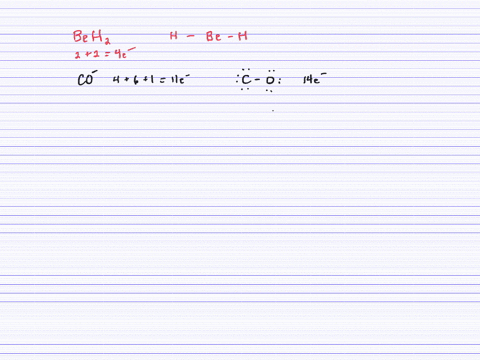 BeH₂ H – Be – H
2 + 2 = 4e⁻
CO⁻ 4 + 6 + 1 = 11e⁻ :C̤̈ – Ö̤: 14e⁻